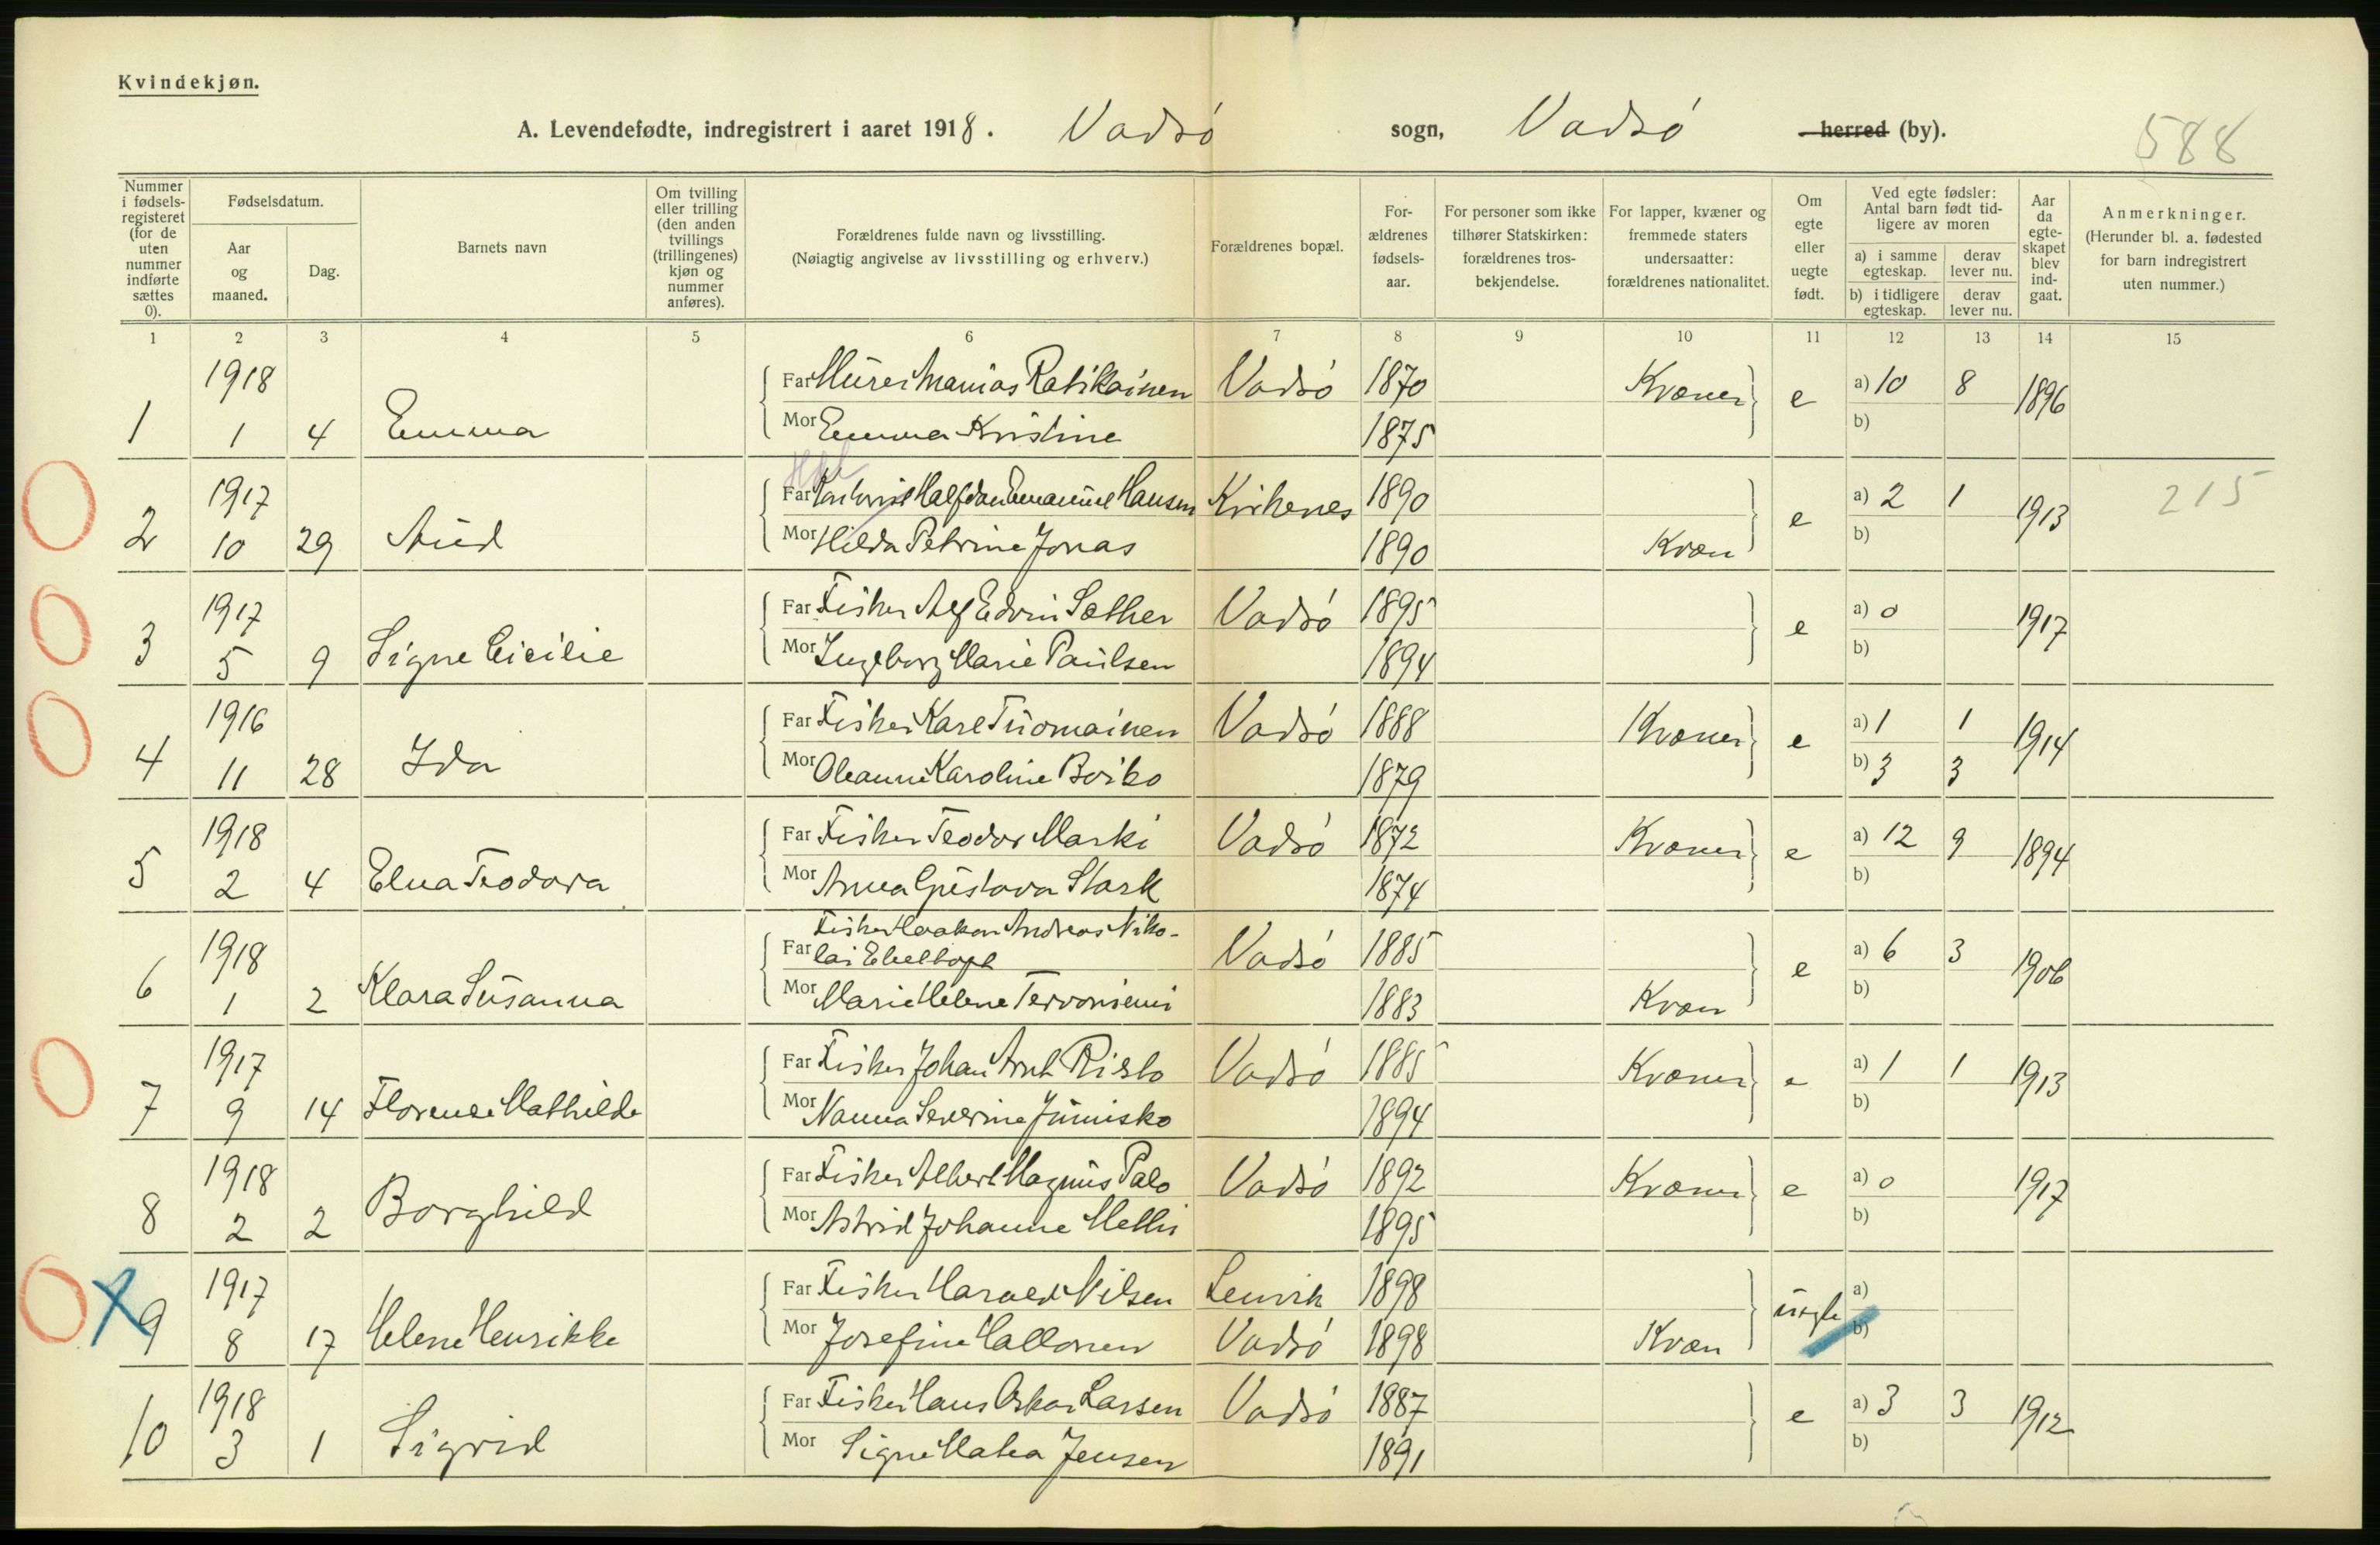 Kvindekjøn.
A. Levendefødte, indregistrert i aaret 1918. Vadsø sogn, Vadsø herred (by).
588
Nummer i fødsels-registeret (for de uten nummer indførte sættes 0).
Fødselsdatum.
Aar og maaned.
Dag.
Barnets navn
Om tvilling eller trilling (den anden tvillings (trillingenes) kjøn og nummer anføres).
Forældrenes fulde navn og livsstilling.
(Nøiagtig angivelse av livsstilling og erhverv.)
Forældrenes bopæl.
For-ældrenes fødsels-aar.
For personer som ikke tilhører Statskirken: forældrenes tros-bekjendelse.
For lapper, kvæner og fremmede staters undersaatter: forældrenes nationalitet.
Om egte eller uegte født.
Ved egte fødsler: Antal barn født tid-ligere av moren
a) i samme egteskap.
derav lever nu.
b) i tidligere egteskap.
derav lever nu.
Aar da egte-skapet blev ind-gaat.
Anmerkninger.
(Herunder bl. a. fødested for barn indregistrert uten nummer.)
1 2 3 4 5 6 7 8 9 10 11 12 13 14 15
1918 Far Murer Manias Ratikainen Vadsø 1870 Kvæner e a) 10 8 1896
1 1 4 Emma Mor Emma Kristine 1875 b)
1917 Far Halfdan Emanuel Hansen Kirkenes 1890 e a) 2 1 1913 215
2 10 29 Aud Mor Hilda Petrine Jonas 1890 Kvæn b)
1917 Far Fisker Alf Edvin Sæther Vadsø 1895 e a) 0 1917
3 5 9 Signe Cicilie Mor Ingeborg Marie Paulsen 1894 b)
1916 Far Fisker Karl Tuomainen Vadsø 1888 Kvæner e a) 1 1 1914
4 11 28 Ida Mor Oleanne Karoline Boiko 1879 b) 3 3
1918 Far Fisker Teodor Marki Vadsø 1872 Kvæner e a) 12 9 1894
5 2 4 Elna Teodora Mor Anna Gustava Stark 1874 b)
Fisker Haakon Andreas Niko-
1918 Far lai Vadsø 1885 e a) 6 3 1906
6 1 2 Klara Susanna Mor Marie Helene Tervoniemi 1883 Kvæn b)
1917 Far Fisker Johan Arnt Risto Vadsø 1885 Kvæner e a) 1 1 1913
7 9 14 Florence Mathilde Mor Nanna Severine Junisko 1894 b)
1918 Far Fisker Albert Magnus Palo Vadsø 1892 Kvæner e a) 0 1917
8 2 2 Borghild Mor Astrid Johanne 1895 b)
1917 Far Fisker Harald Nilsen Lenvik 1898 uegte a)
9 8 17 Helene Henrikke Mor Josefine Hallonen Vadsø 1898 Kvæn b)
1918 Far Fisker Hans Oskar Larsen Vadsø 1887 e a) 3 3 1912
10 3 1 Sigrid Mor Signe Malea Jensen 1891 b)